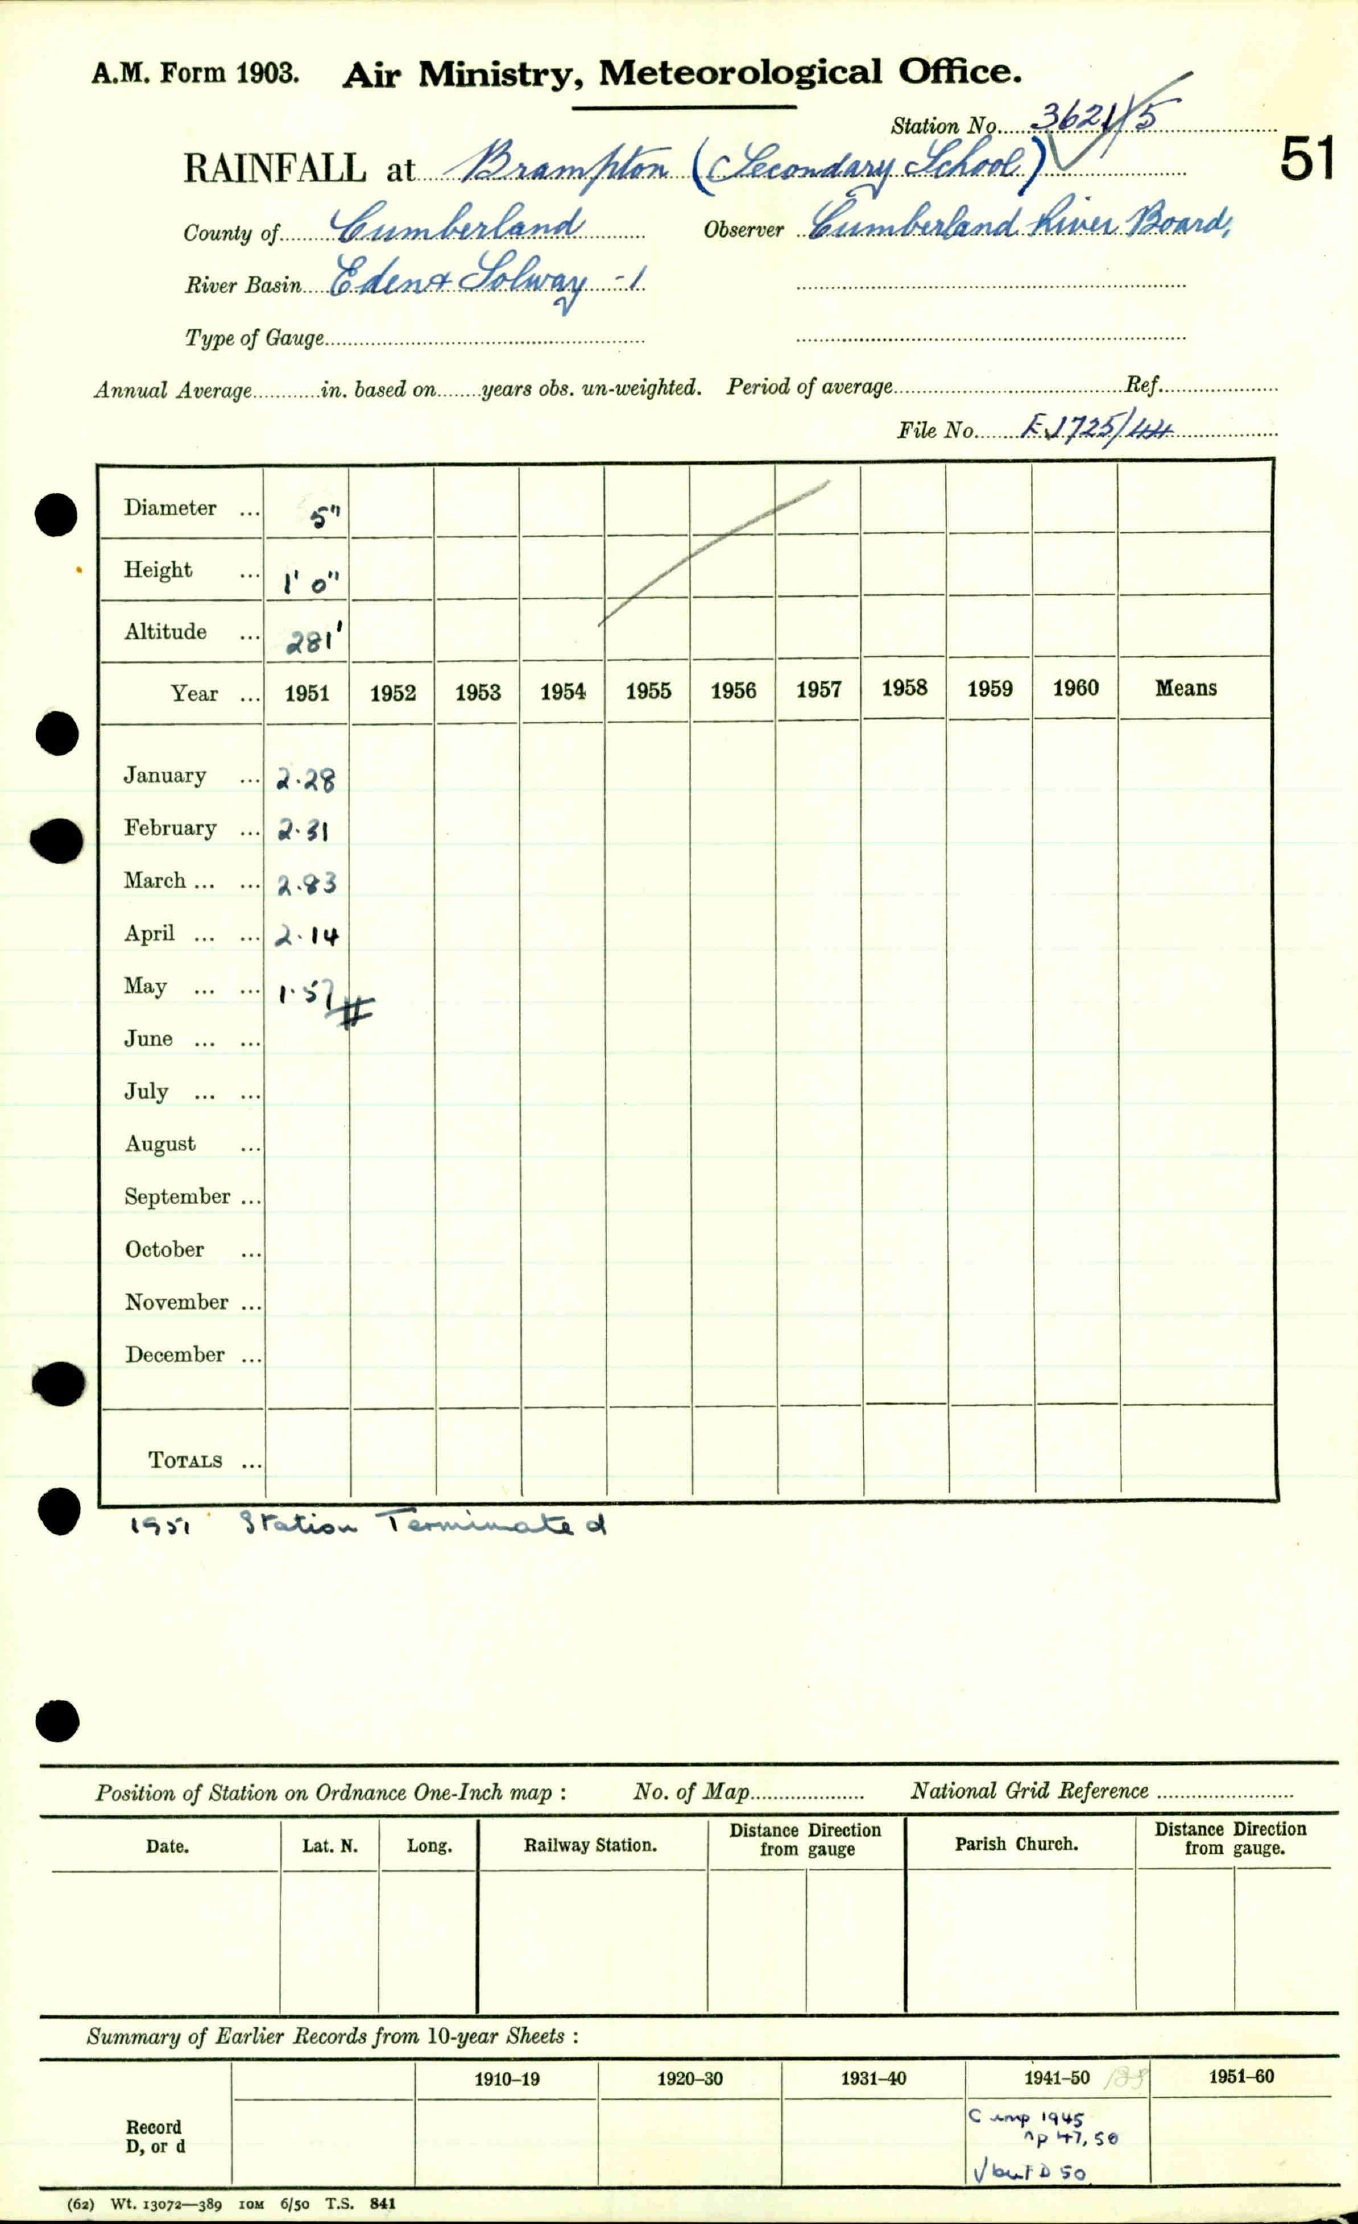 A.M. Form 1903. Air Ministry, Meteorological Office.
Station No. 3621/5
RAINFALL at Brampton (Secondary School) 51
County of Cumberland Observer Cumberland River Board,
River Basin Eden & Solway -1
Type of Gauge
Annual Average in. based on years obs. un-weighted. Period of average Ref.
File No.
Diameter ... 5"
Height ... 1' 0"
Altitude ... 281'
Year ... 1951 1952 1953 1954 1955 1956 1957 1958 1959 1960 Means
January ... 2.28
February ... 2.31
March ... ... 2.83
April ... ... 2.14
May ... ... 1.57 #
June ... ...
July ... ...
August ...
September ...
October ...
November ...
December ...
TOTALS ...
1951 Station Terminated
Position of Station on Ordnance One-Inch map : No. of Map National Grid Reference
Date. Lat. N. Long. Railway Station. Distance from Direction gauge Parish Church. Distance from Direction gauge.
Summary of Earlier Records from 10-year Sheets :
1910–19 1920–30 1931–40 1941–50 1951–60
Record
D, or d
1945
47, 50
√ but D 50
(62) Wt. 13072—389 10M 6/50 T.S. 841